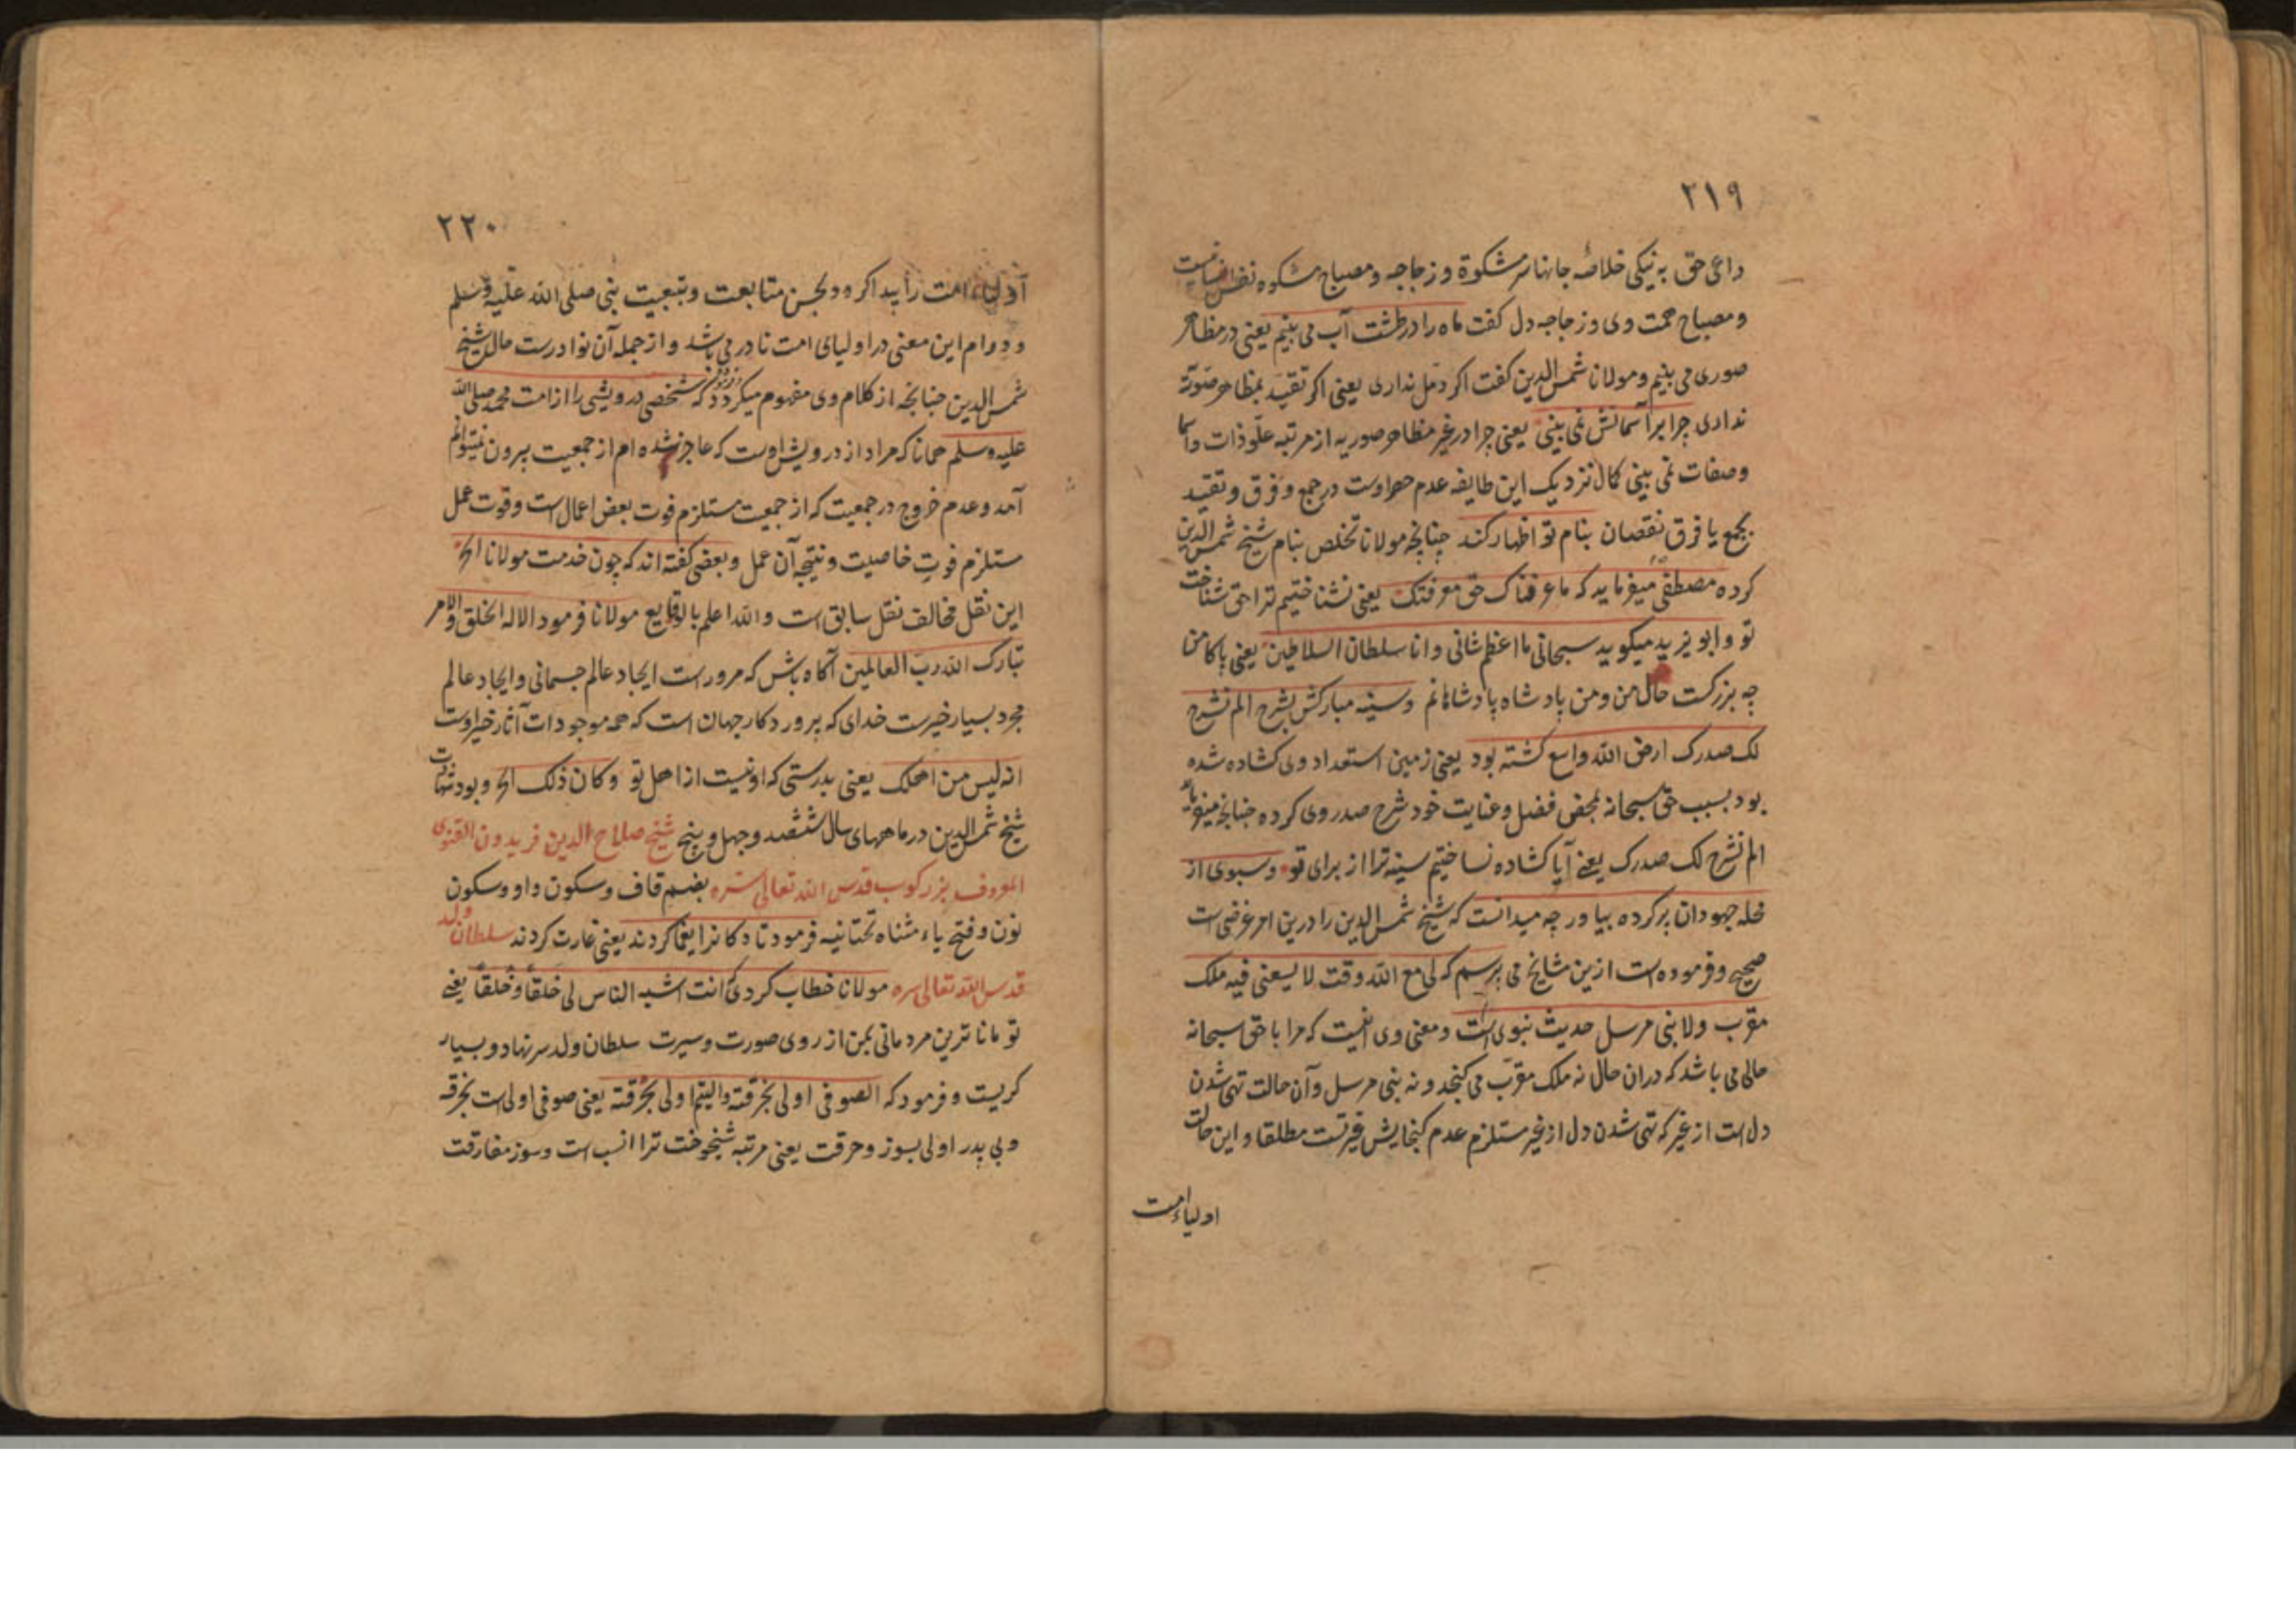 ۲۱۹
داعی حق به نیکی خلاصهٔ جانها سر مشکوة و زجاجه و مصباح مشکوه نفس
و مصباح همت وی و زجاجه دل کفت ماه را در طشت آب می بینم یعنی در مظاهر
صوری می بینم و مولانا شمس الدین کفت اکر دمل نداری یعنی اکر تقید بمظاهر صوریه
نداری چرا بر آسمانش نمی بینی یعنی چرا در غیر مظاهر صوریه از مرتبه علو ذات و اسما
و صفات نمی بینی کمال نزدیک این طایفه عدم حصر اوست در جمع و فرق و تقید
بجمع یا فرق نقصان بنام تو اظهار کند چنانچه مولانا تخلص بنام شیخ شمس الدین
کرده مصطفی میفرماید که ما عرفناک حق معرفتک یعنی نشناختیم ترا حق شناخت
تو و ابو یزید میکوید سبحانی ما اعظم شانی و انا سلطان السلاطین یعنی پاکا من
چه بزرکست حال من و من پادشاه پادشاهانم و سینه مبارکش بشرح الم نشرح
لک صدرک ارض الله واسع کشته بود یعنی زمین استعداد وی کشاده شده
بود بسبب حق سبحانه بمحض فضل و عنایت خود شرح صدر وی کرده چنانچه میفرماید
الم نشرح لک صدرک یعنی آیا کشاده نساختیم سینه ترا از برای تو و سبوی از
محله جهودان پر کرده بیاور چه میدانست که شیخ شمس الدین را درین امر غرضی است
صحیح و فرموده است ازین مشایخ می پرسم که لی مع الله وقت لا یسعنی فیه ملک
مقرب و لا نبی مرسل حدیث نبوی است و معنی وی اینست که مرا با حق سبحانه
حالی می باشد که دران حال نه ملک مقرب می کنجد و نه نبی مرسل و آن حالت تهی شدن
دل است از غیر که تهی شدن دل از غیر مستلزم عدم کنجایش غیرتست مطلقا و این حالت
اولیاء امت
۲۲۰
اولیاء امت را پیدا کردد بحسن متابعت و تبعیت نبی صلی الله علیه وسلم
و دوام این معنی در اولیای امت نادر می باشد و از جمله آن نوادرست حال شیخ
شمس الدین چنانچه از کلام وی مفهوم میکردد که شخصی درویشی را از امت محمد صلی الله
علیه وسلم همانا که مراد از درویش اوست که عاجز شده ام از جمعیت بیرون نمیتوانم
آمد و عدم خروج در جمعیت که از جمعیت مستلزم فوت بعض اعمال است و فوت عمل
مستلزم فوت خاصیت و نتیجه آن عمل و بعضی کفته اند که چون خدمت مولانا الخ
این نقل مخالف نقل سابق است و الله اعلم بالوقایع مولانا فرمود الا له الخلق والامر
تبارک الله رب العالمین آکاه باش که مر وراست ایجاد عالم جسمانی و ایجاد عالم
مجرد بسیار خیرست خدای که پروردکار جهان است که همه موجودات آثار خیر اوست
انه لیس من اهلک یعنی بدرستی که او نیست از اهل تو و کان ذلک الخ و بود شهادت
شیخ شمس الدین در ماههای سال ششصد و چهل و پنج شیخ صلاح الدین فریدون القنوی
المعروف بزرکوب قدس الله تعالی سره بضم قاف و سکون واو و سکون
نون و فتح یاء مثناه تحتانیه فرمود تا دکانرا یغما کردند یعنی غارت کردند سلطان ولد
قدس الله تعالی سره مولانا خطاب کردی که انت اشبه الناس لی خلقاً و خلقاً یعنی
تو ماناترین مردمانی بمن از روی صورت و سیرت سلطان ولد سر نهاد و بسیار
کریست و فرمود که الصوفی اولی بخرقته و الیتیم اولی بحرقته یعنی صوفی اولی است بخرقه
و بی پدر اولی بسوز و حرقت یعنی مرتبه شیخوخت ترا انسب است و سوز مفارقت